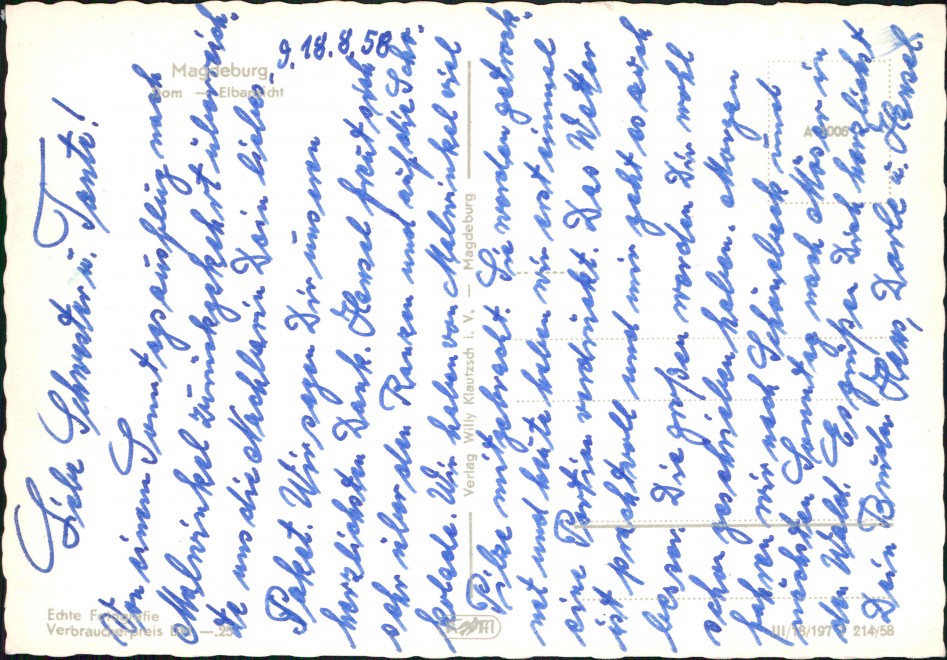 Magdeburg
Dom — Elbansicht
d. 18.8.58
Liebe Schwester u. Tante!
Von einem Sonntagsausflug nach
Malwinkel zurückgekehrt überreich-
te uns die Nachbarin Dein liebes
Paket. Wir sagen Dir unseren
herzlichsten Dank. Hensel freut sich
sehr über den Ranzen und auf die Scho-
kolade. Wir haben von Malwinkel viel
Pilze mitgebracht. Sie werden getrock-
net und heute haben wir erst einmal
eine Portion verdrückt. Das Wetter
ist prachtvoll und mir geht es auch
besser. Die großen werden Dir wohl
schon geschrieben haben. Morgen
fahren wir nach Schönebeck und
nächsten Sonntag nach Möser in
den Wald. Es grüßen Dich herzlichst
Dein Bruder Hans, Dorle u. Hensel
Verlag Willy Klautzsch i. V. — Magdeburg
Echte Fotografie
Verbraucherpreis DM —.25
III/18/197 214/58